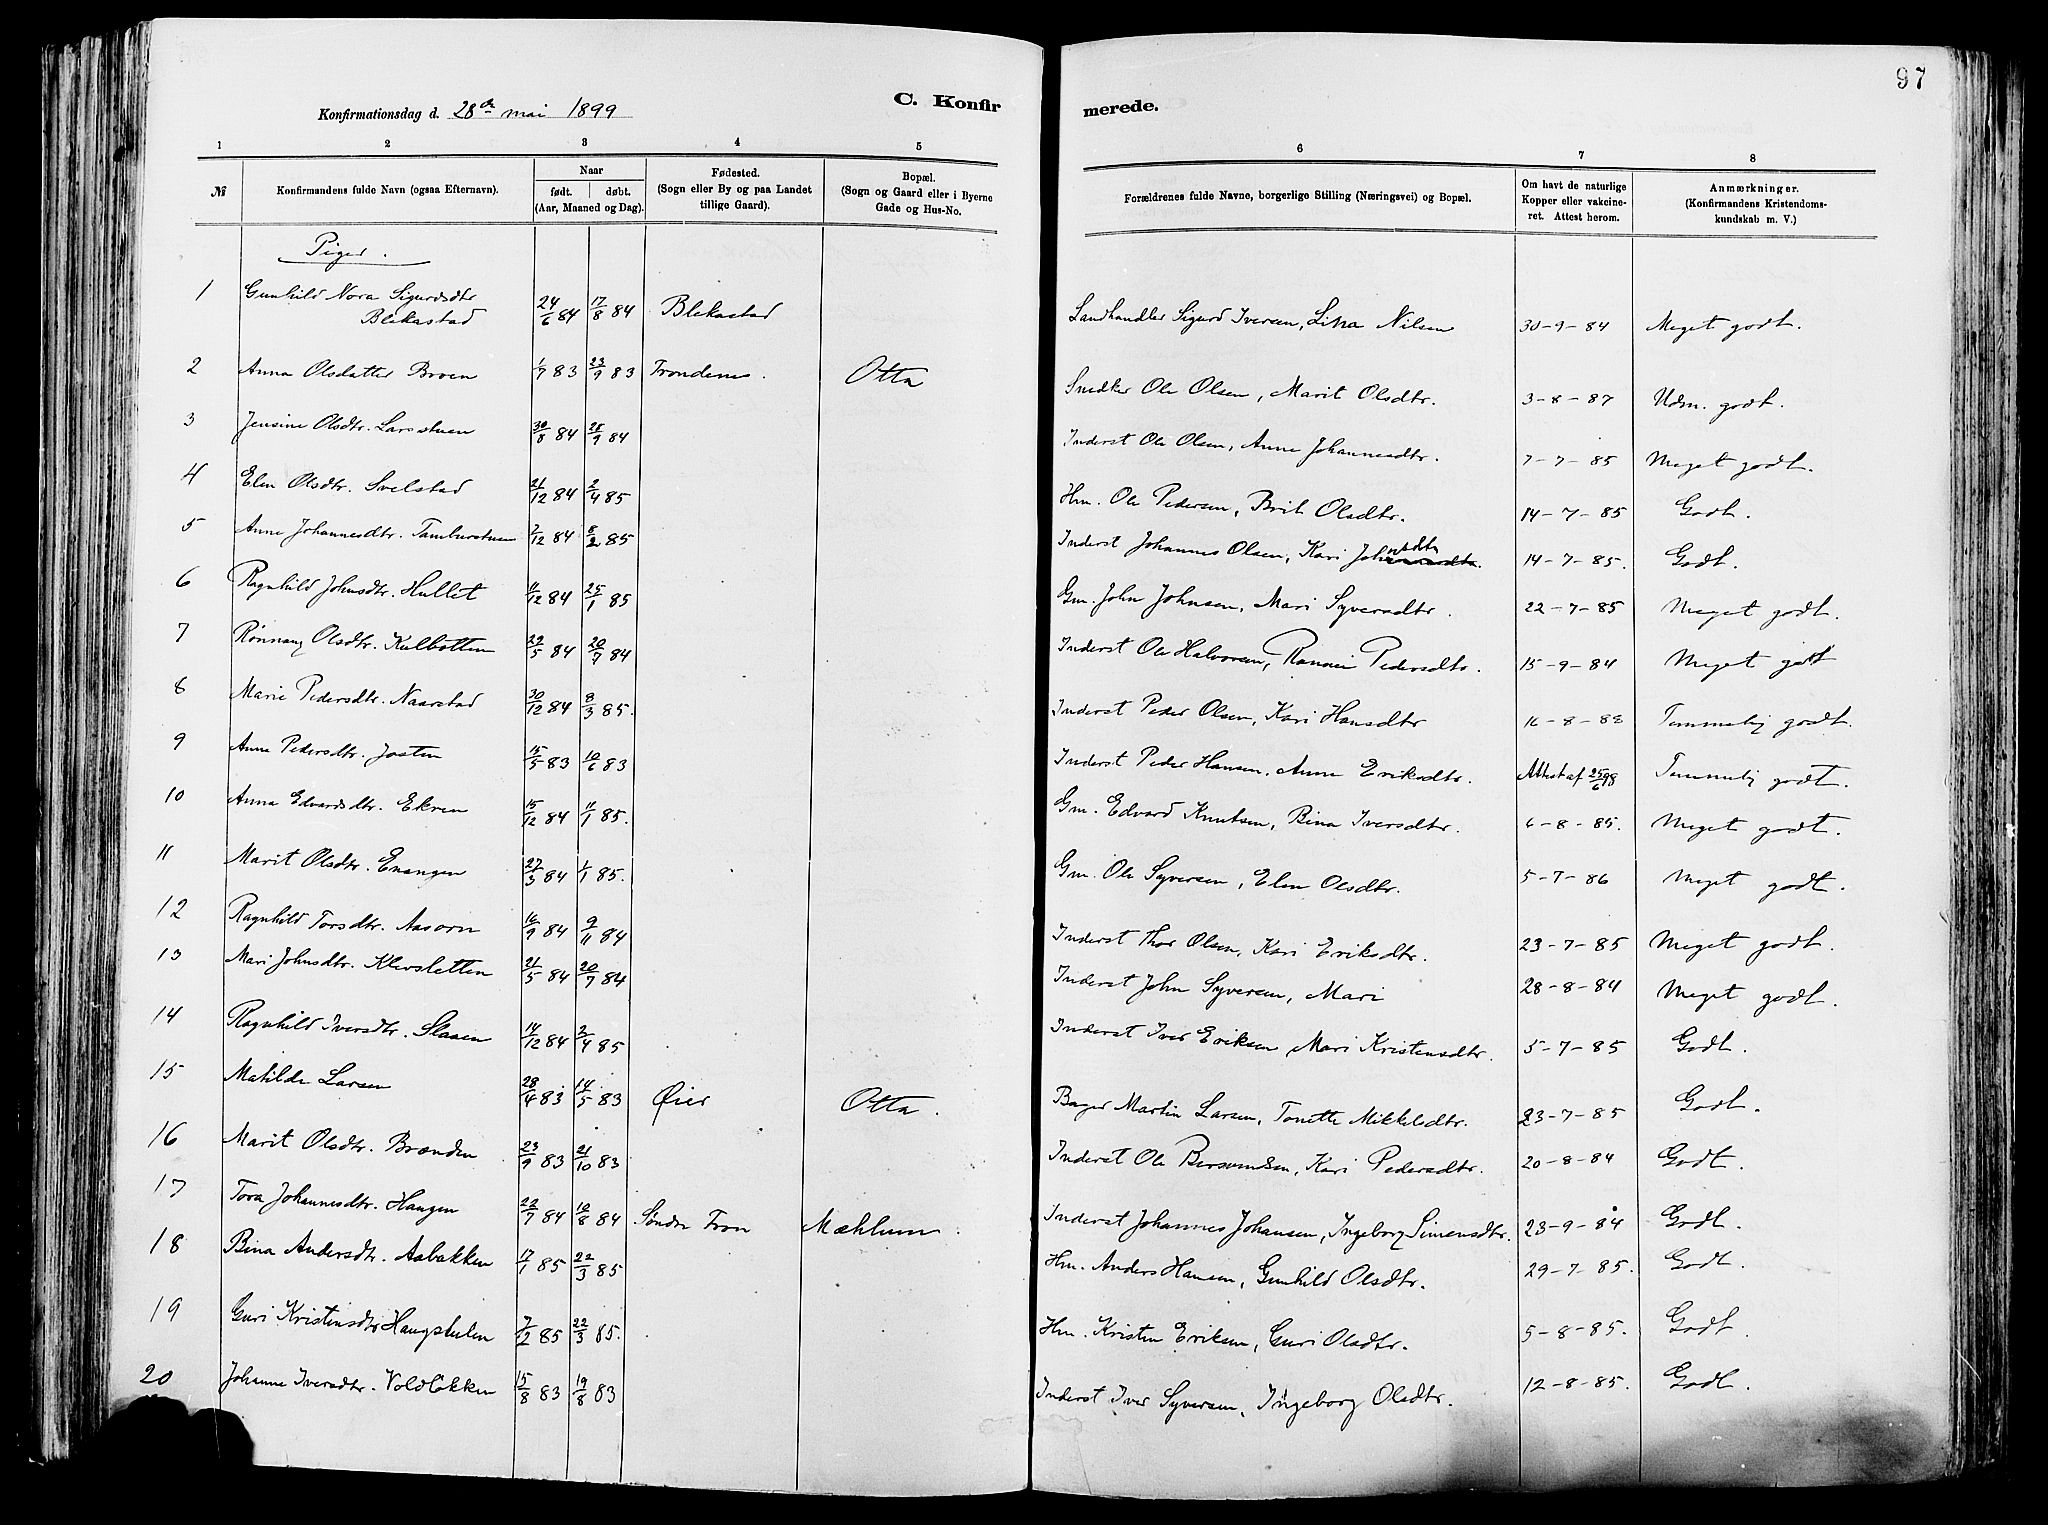 97
Konfirmationsdag d. 28de mai 1899
C. Konfirmerede.
1 2 3 4 5 6 7 8
№ Konfirmandens fulde Navn (ogsaa Efternavn). Naar født. døbt. (Aar, Maaned og Dag). Fødested. (Sogn eller By og paa Landet tillige Gaard). Bopæl. (Sogn og Gaard eller i Byerne Gade og Hus-No. Forældrenes fulde Navne, borgerlige Stilling (Næringsvei) og Bopæl. Om havt de naturlige Kopper eller vakcineret. Attest herom. Anmærkninger. (Konfirmandens Kristendomskundskab m. V.)
Piger.
1 Gunhild Nora Sigurdsdtr Blekastad 24/6 84 17/8 84 Blekastad Landhandler Sigurd Iversen, Lina Nilsen 30-9-84 Meget godt.
2 Anna Olsdatter Broen 1/7 83 23/9 83 Trondenes. Otta Snedker Ole Olsen, Marit Olsdtr. 3-8-87 Udm. godt.
3 Jensine Olsdtr. Larsstuen 30/8 84 28/9 84 Inderst Ole Olsen, Anne Johannesdtr. 7-7-85 Meget godt.
4 Elen Olsdtr. Selstad 21/12 84 2/4 85 Hm. Ole Pedersen, Brit Olsdtr. 14-7-85 Godt.
5 Anne Johannesdtr. Tamburstuen 7/12 84 8/2 85 Inderst Johannes Olsen, Kari Johnsdtr. 14-7-85. Godt.
6 Ragnhild Johnsdtr. Hullet 11/12 84 25/1 85 Gm. John Johnsen, Mari Syversdtr. 22-7-85 Meget godt.
7 Rønnaug Olsdtr. Kulbotten 22/5 84 20/7 84 Inderst Ole Halvorsen, Pedersdtr. 15-9-84 Meget godt
8 Marie Pedersdtr. Naarstad 30/12 84 8/3 85. Inderst Peder Olsen, Kari Hansdtr 16-8-86 Temmelig godt.
9 Anne Pedersdtr. Josten 15/5 83 10/6 83 Inderst Peder Hansen, Anne Eriksdtr. Attest af 25/6 98 Temmelig godt.
10 Anna Edvardsdtr. Ekren 15/12 84 11/1 85. Gm. Edvard Knutsen, Bina Iversdtr. 6-8-85. Meget godt.
11 Marit Olsdtr. Enangen 27/3 84 1/1 85. Gm. Ole Syversen, Elen Olsdtr. 5-7-86 Meget godt.
12 Ragnhild Torsdtr. Aasorn 16/9 84 9/11 84 Inderst Thor Olsen, Kari Eriksdtr. 23-7-85 Meget godt.
13 Mari Johnsdtr. Kleivsletten 21/5 84 20/7 84 Inderst John Syversen, Mari 28-8-84 Meget godt.
14 Ragnhild Iversdtr. Slaaen 14/12 84 2/4 85 Inderst Iver Eriksen Mari Kristensdtr. 5-7-85 Godt.
15 Matilde Larsen 28/4 83 14/5 83 Øier Otta. Bager Martin Larsen, Tonette Mikkelsdtr. 23-7-85 Godt.
16 Marit Olsdtr. Brænden 23/9 83 21/10 83 Inderst Ole Bersvendsen, Kari Pedersdtr. 20-8-84 Godt.
17 Tora Johannesdtr. Haugen 22/7 84 10/8 84 Søndre Fron Mæhlum. Inderst Johannes Johansen, Ingeborg Simensdtr. 23-9-84 Godt.
18 Bina Andersdtr. Aabakken 17/1 85 22/3 85 Hm. Anders Hansen, Gunhild Olsdtr. 29-7-85. Godt.
19 Guri Kristensdtr Haugstulen 7/2 85 22/3 85. Hm. Kristen Eriksen, Guri Olsdtr. 5-8-85. Godt.
20 Johanne Iversdtr. Voldløkken 15/8 83 19/8 83 Inderst Iver Syversen, Ingeborg Olsdtr. 12-8-85. Godt.